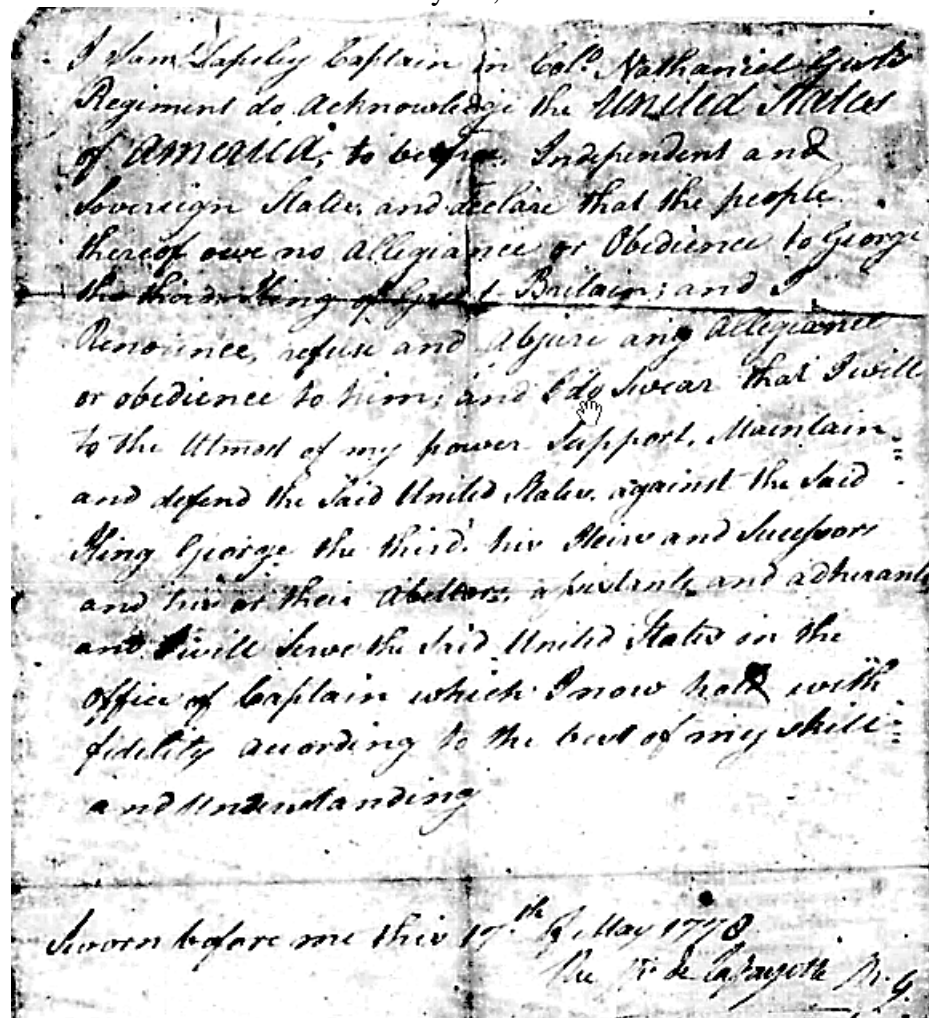 I Sam.l Lapsley Captain in Col.o Nathaniel Gist's
Regiment do acknowledge the United States
of America, to be free, Independent and
Sovereign States, and declare that the people
thereof owe no allegiance or Obedience to George
the third King of Great Britain; and I
Renounce, refuse and Abjure any allegiance
or obedience to him; and I do Swear that I will
to the Utmost of my power Support, Maintain =
and defend the Said United States, against the Said
King George the third, his Heirs and Successors
and his or their abettors, assistants and adherants
and I will Serve the Said United States in the
office of Captain which I now hold with
fidelity according to the best of my skill =
and Understanding
Sworn before me this 17th of May 1778
de Lafayette M.G.